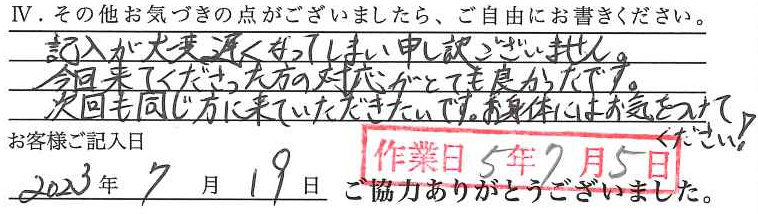 Ⅳ．その他お気づきの点がございましたら、ご自由にお書きください。
記入が大変遅くなってしまい申し訳ございません。
今回来てくださった方の対応がとても良かったです。
次回も同じ方に来ていただきたいです。お身体にはお気をつけて
ください！
お客様ご記入日
作業日 5年7月5日
2023年 7月 19日 ご協力ありがとうございました。